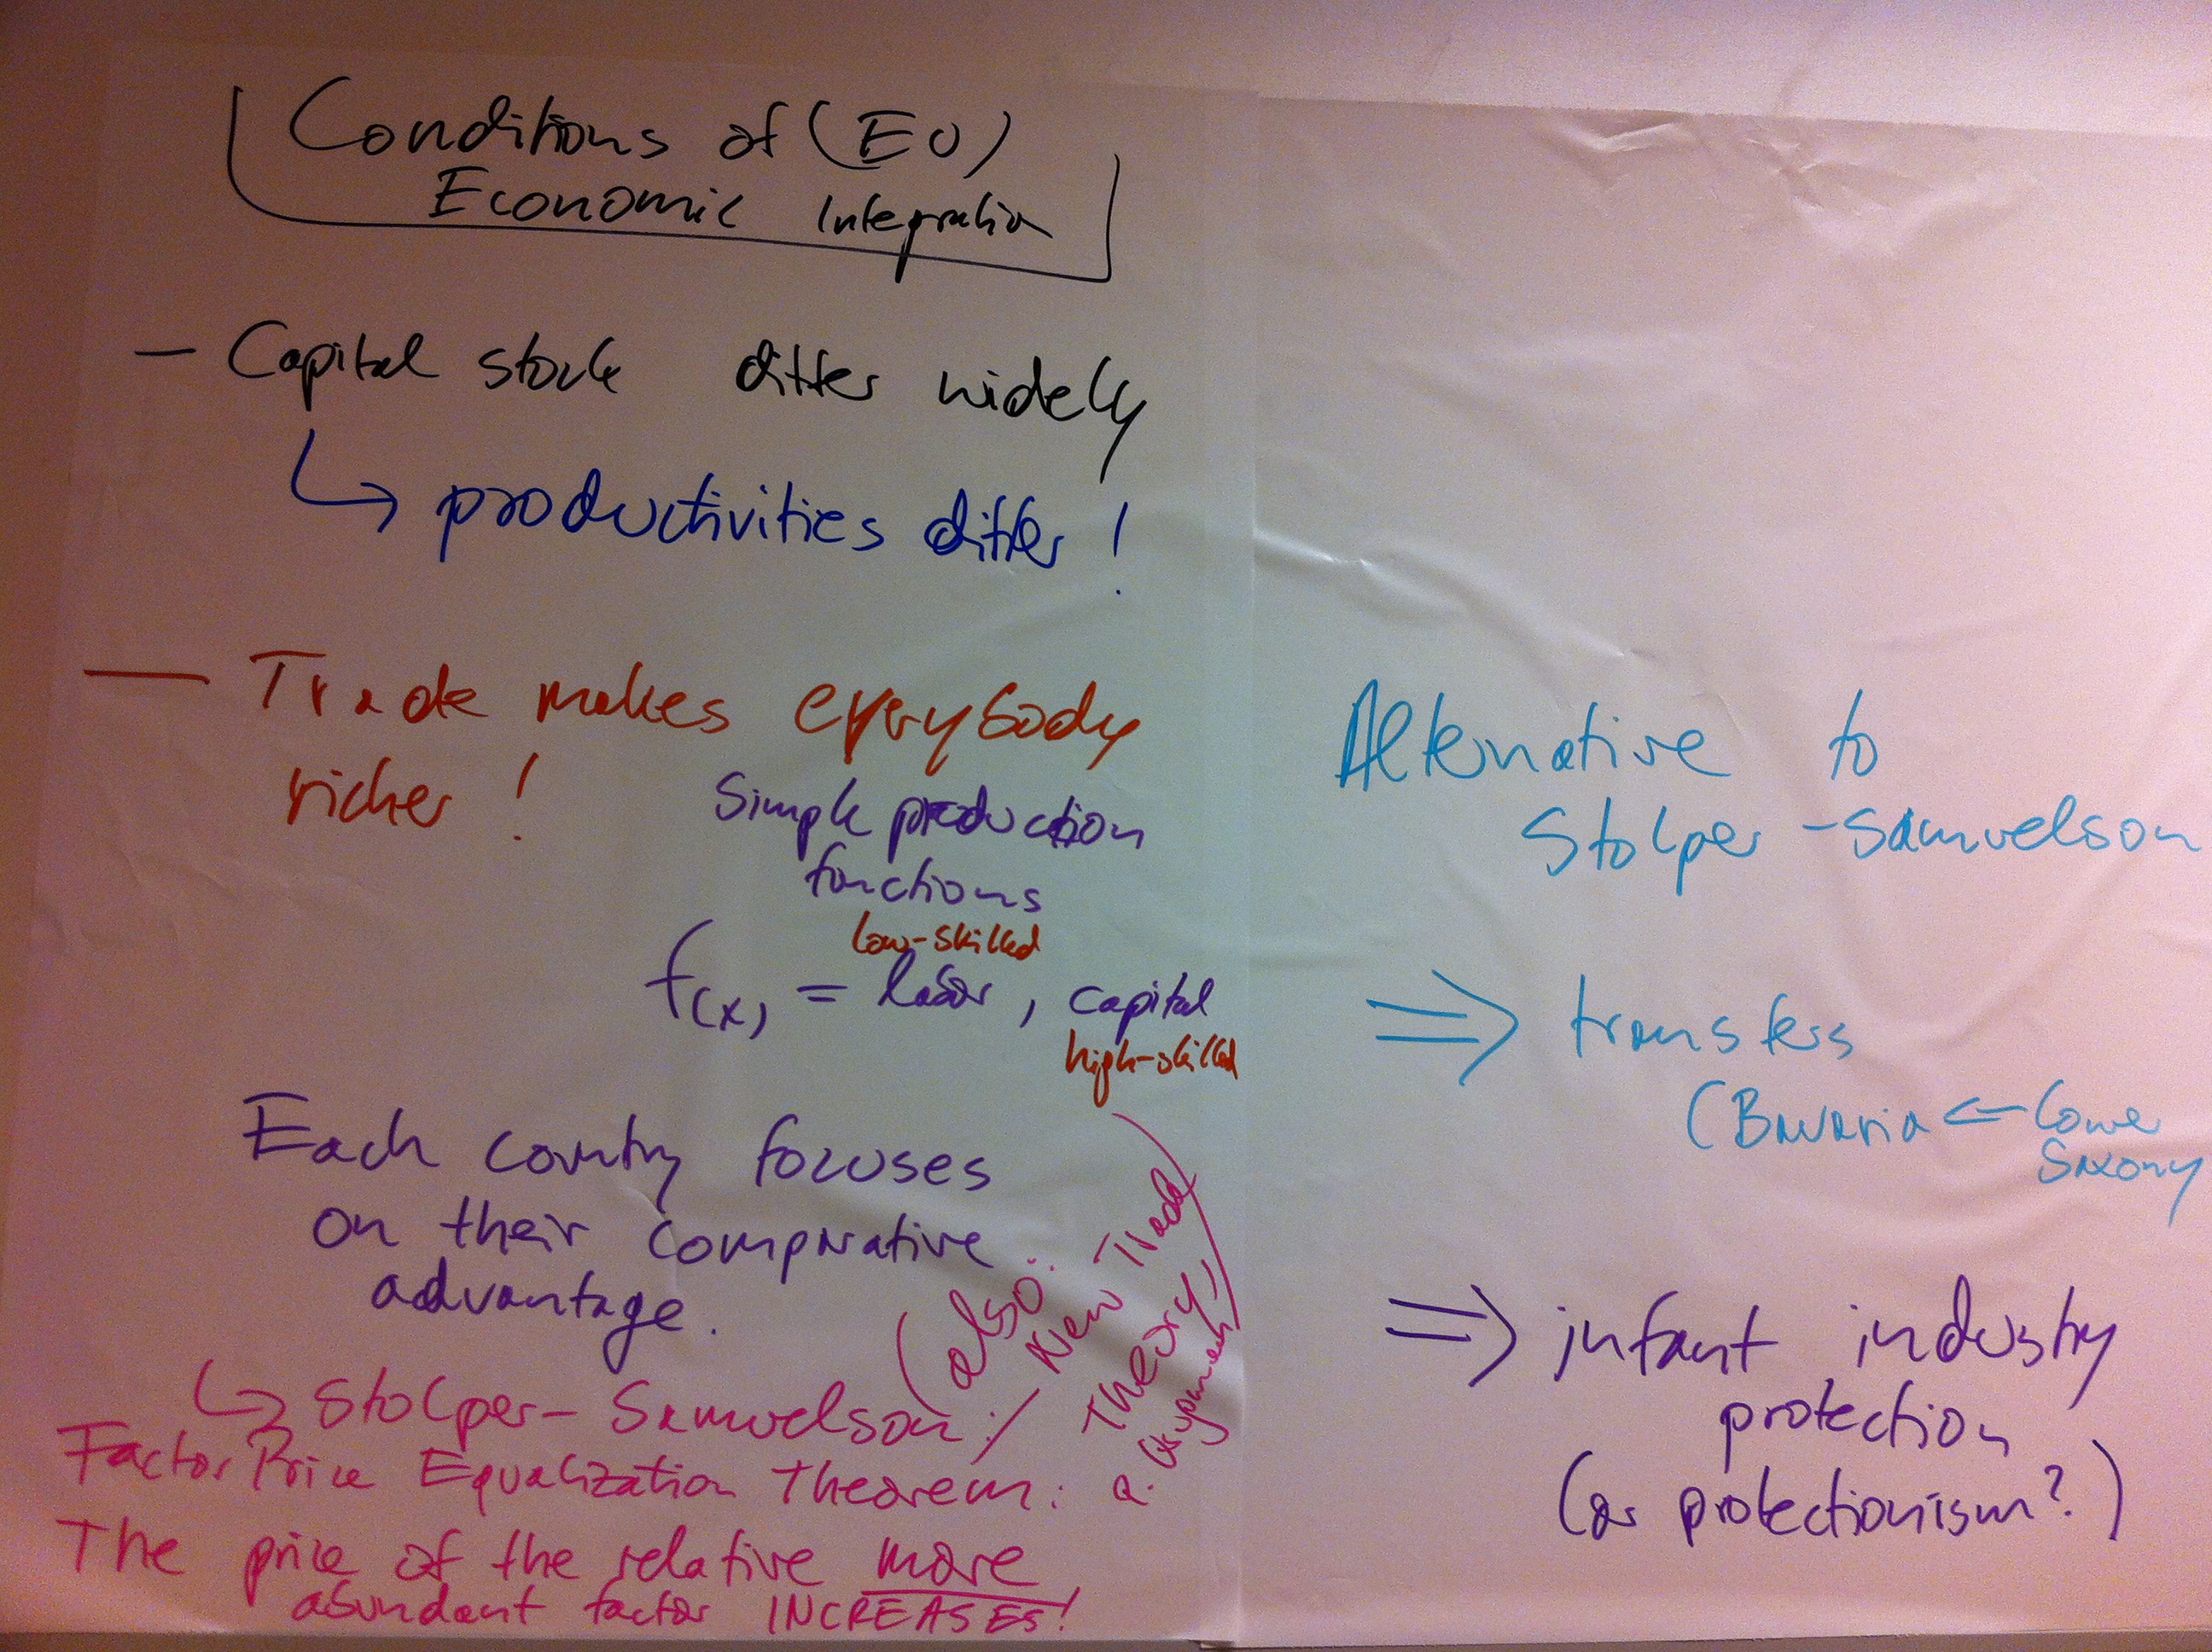 Conditions of (EU)
Economic Integration
– Capital stock differ widely
↳ productivities differ!
— Trade makes everybody
richer!
Simple production
functions
low-skilled
f(x) = labor, capital
high-skilled
Each country focuses
on their comparative
advantage.
(also:
New Trade
Theory,
↳ Stolper-Samuelson:/
Factor Price Equalization Theorem:
The price of the relative more
abundant factor INCREASES!
Alternative to
Stolper-Samuelson
⇒ transfers
(Bavaria ← Lower
Saxony
⇒ infant industry
protection
(or protectionism?)